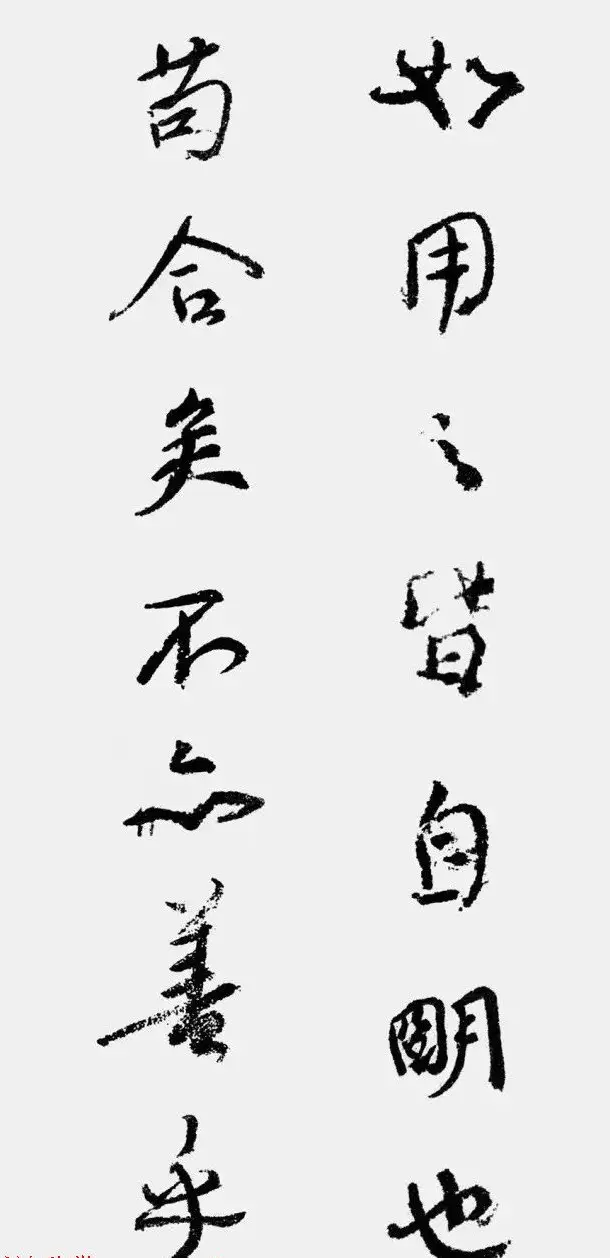 如用之皆自朙也
苟合矣不亦善乎